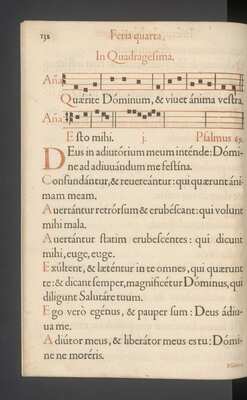 132 Feria quarta,
In Quadragesima.
Aña
Quærite Dóminum, & viuet ánima vestra.
Aña
Esto mihi. j. Psalmus 69.
DEus in adiutórium meum inténde: Dómi-
ne ad adiuuándum me festína.
Confundántur, & reuereántur: qui quærunt áni-
mam meam.
Auertántur retrórsum & erubéscant: qui volunt
mihi mala.
Auertántur statim erubescéntes: qui dicunt
mihi, euge, euge.
Exúltent, & læténtur in te omnes, qui quærunt
te: & dicant semper, magnificétur Dóminus, qui
díligunt Salutáre tuum.
Ego verò egénus, & pauper sum: Deus ádiu-
ua me.
Adiútor meus, & liberátor meus es tu: Dómi-
ne ne moréris.